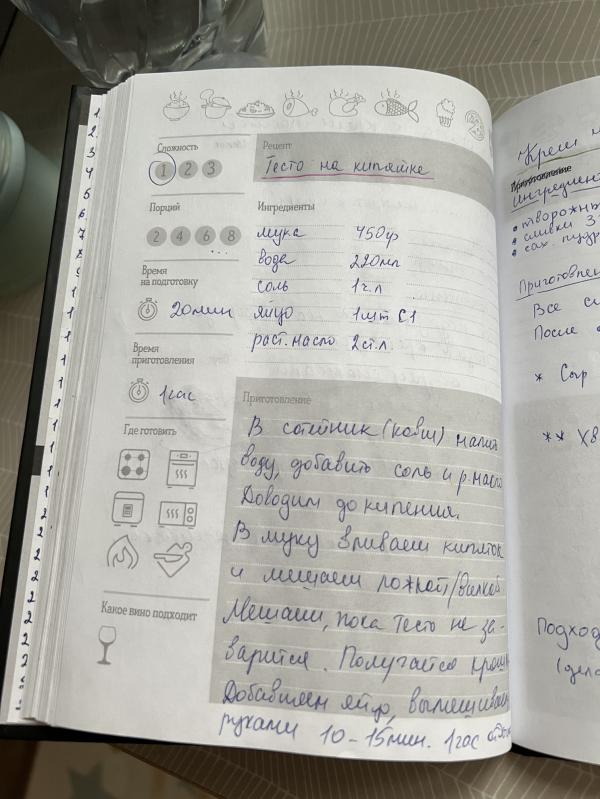 Сложность
1 2 3
Рецепт
Тесто на кипятке
Порций
2 4 6 8
Ингредиенты
мука 450гр
вода 220мл
соль 1ч.л
яйцо 1шт С1
раст. масло 2ст.л
Время
на подготовку
20мин
Время
приготовления
1час
Где готовить
Какое вино подходит
Приготовление
В сотейник (ковш) налить
воду, добавить соль и р.масло
Доводим до кипения.
В муку вливаем кипяток
и мешаем ложкой/вилкой
Мешаем, пока тесто не за-
варится. Получается крошка
Добавляем яйцо, вымешиваем
руками 10-15мин. 1час
Крем
Приготовление
ингредиенты
• творожный
• сливки
• сах. пудра
Приготовление
Все
После
* Сыр
**
Подход